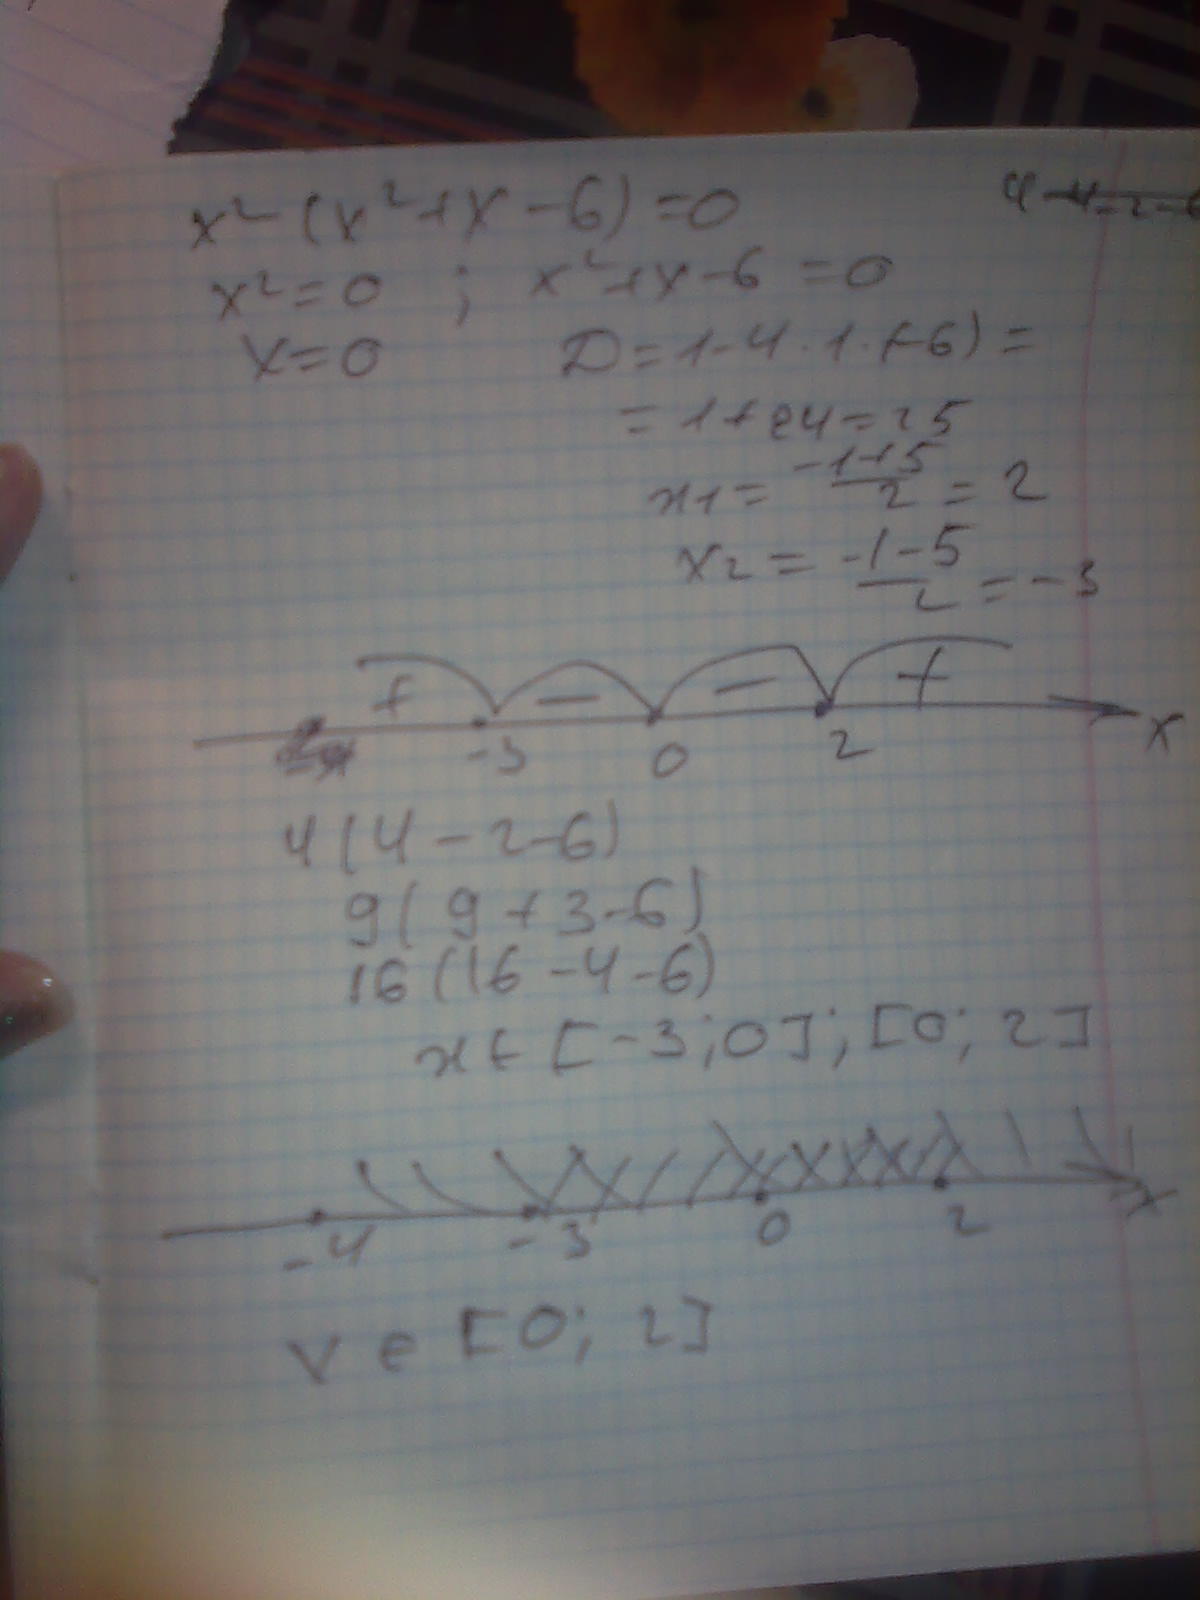 x² (x²+x-6)=0
x²=0 ; x²+x-6=0
x=0 D=1-4·1·(-6)=
=1+24=25
x1= -1+5/2 = 2
x2= -1-5/2 = -3
+ − − +
-3 0 2 x
4(4-2-6)
9(9+3-6)
16(16-4-6)
x∈[-3;0];[0;2]
-4 -3 0 2 x
x∈[0;2]